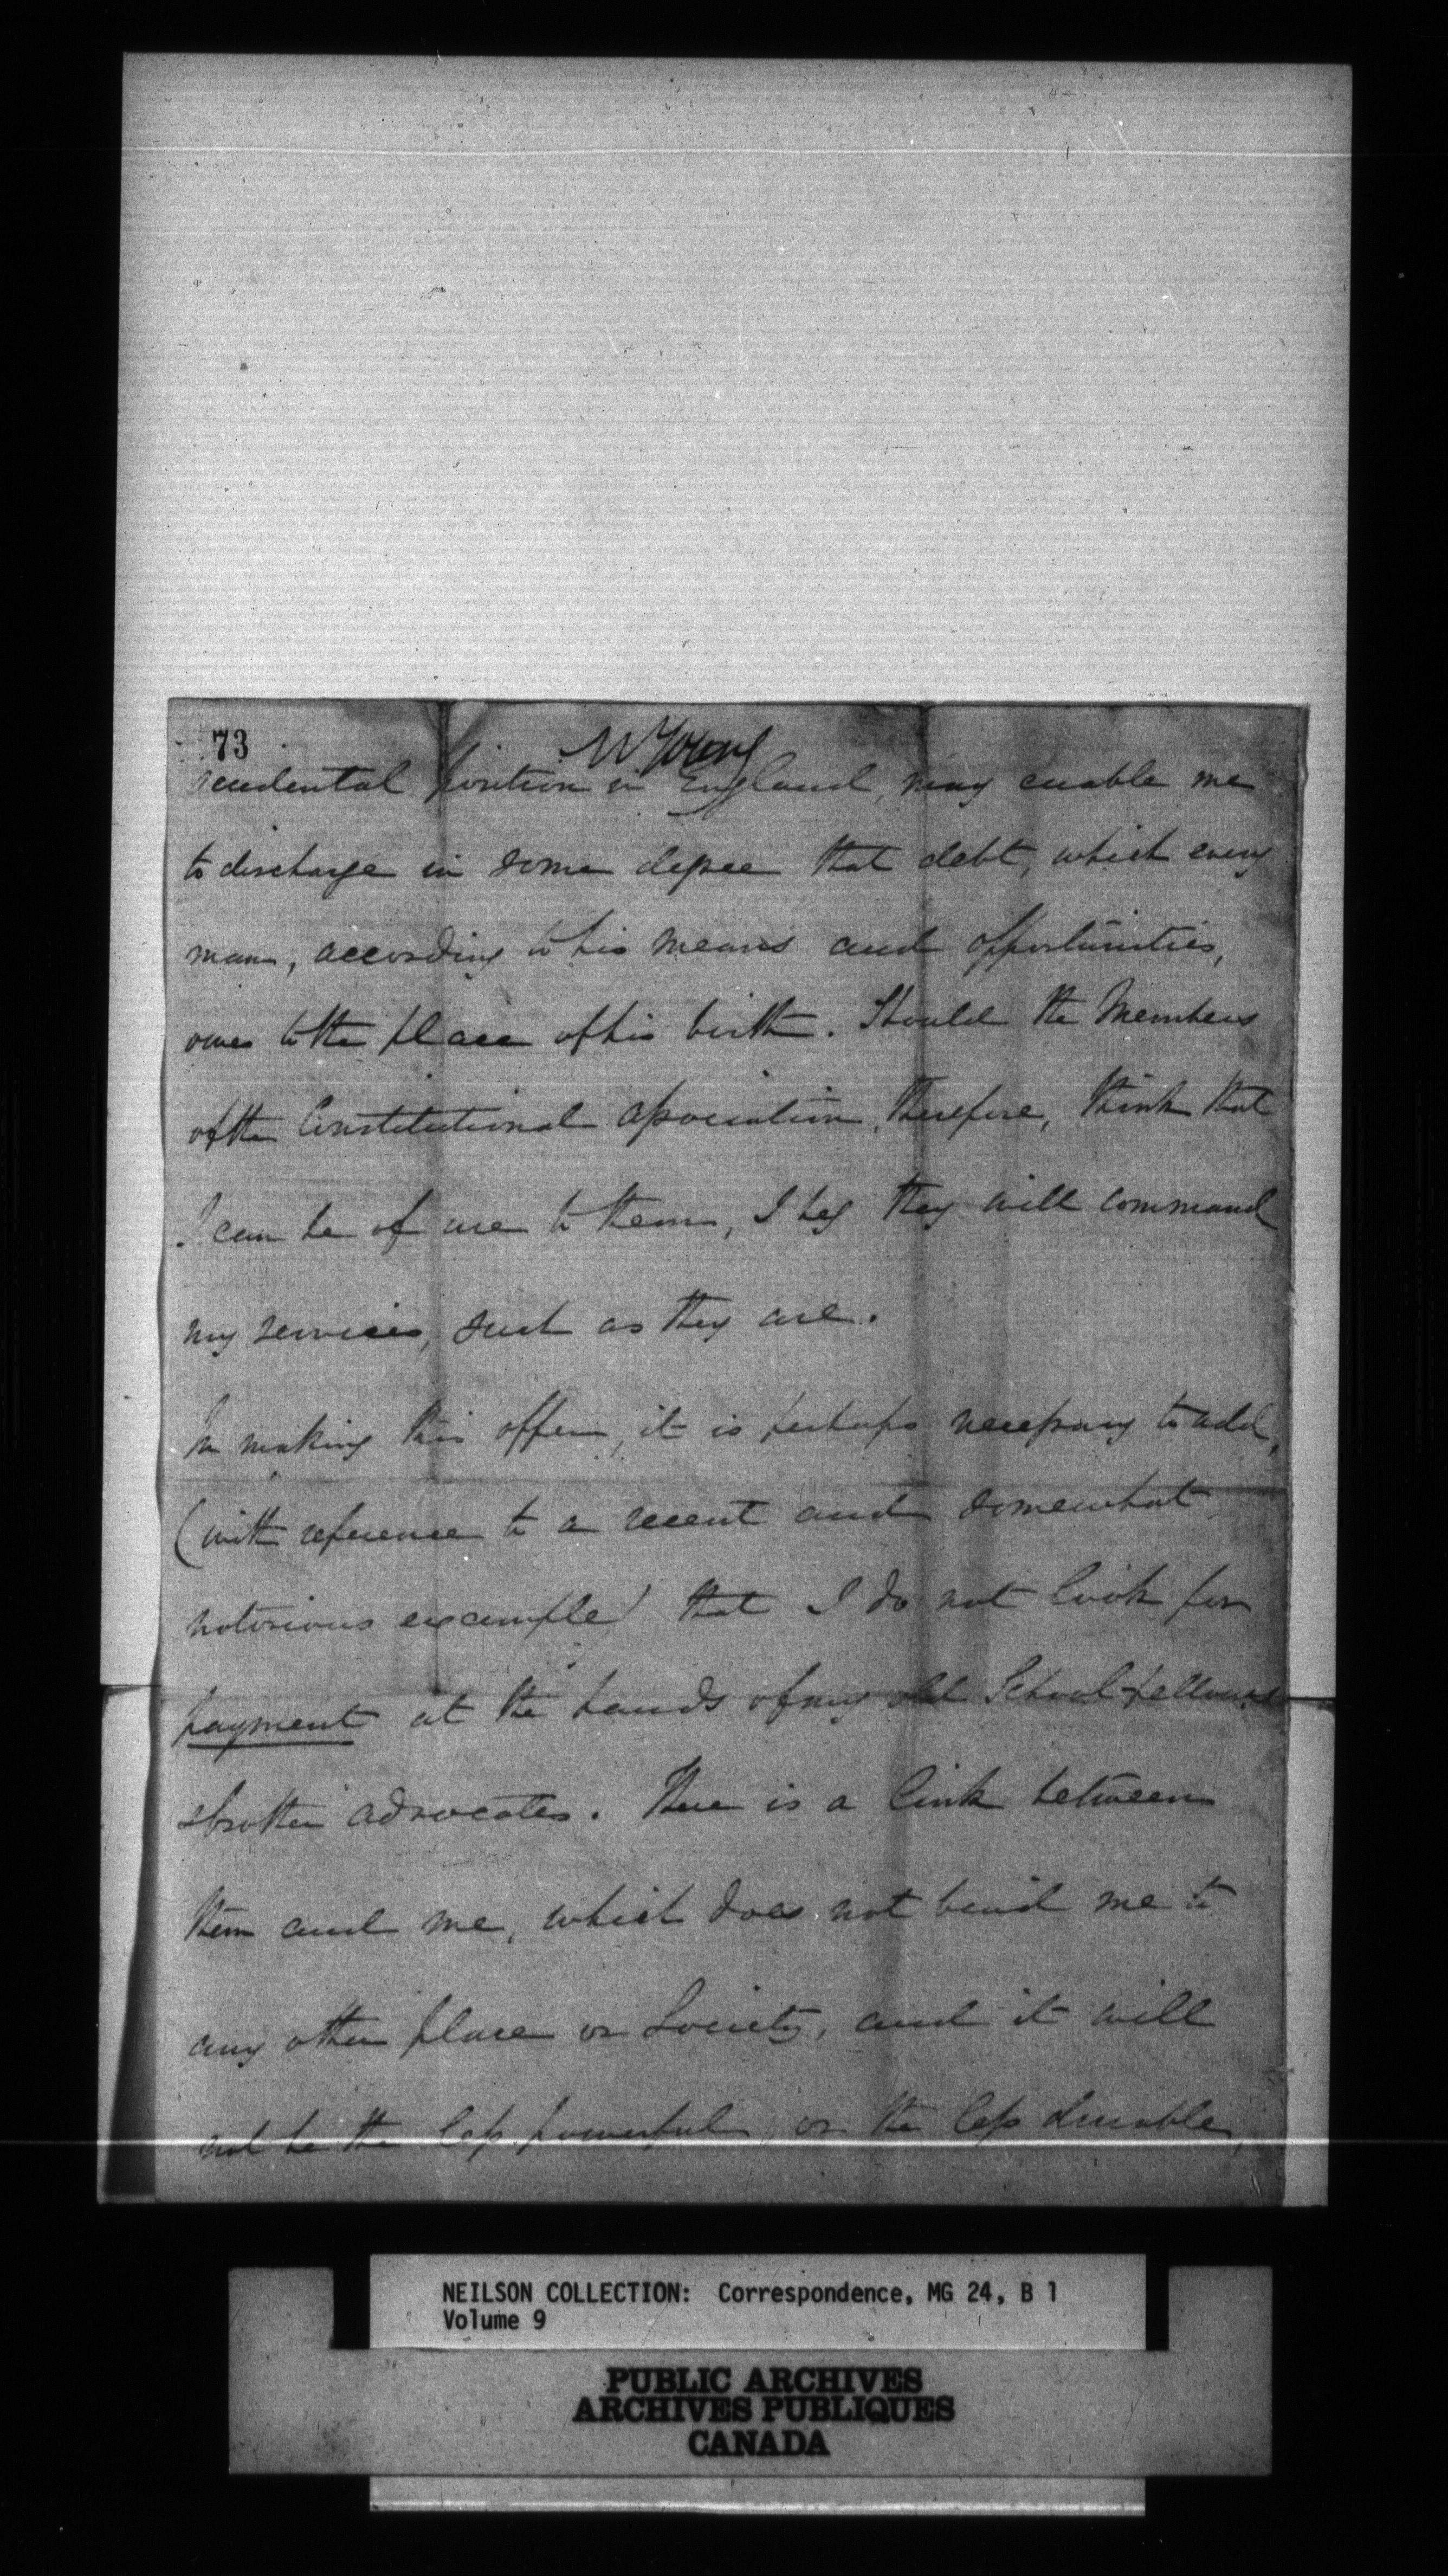 73
W Young
accidental position in England, may enable me
to discharge in some degree that debt, which every
man, according to his means and opportunities,
owes to the place of his birth. Should the Members
of the Constitutional Association, therefore, think that
I can be of use to them, I beg they will command
my services, such as they are.
In making this offer, it is perhaps necessary to add,
(with reference to a recent and somewhat
notorious example) that I do not look for
payment at the hands of my old School-fellows
& brother advocates. There is a link between
them and me, which does not bind me to
any other place or Society, and it will
not be the less powerful, or the less durable,
NEILSON COLLECTION: Correspondence, MG 24, B 1
Volume 9
PUBLIC ARCHIVES
ARCHIVES PUBLIQUES
CANADA